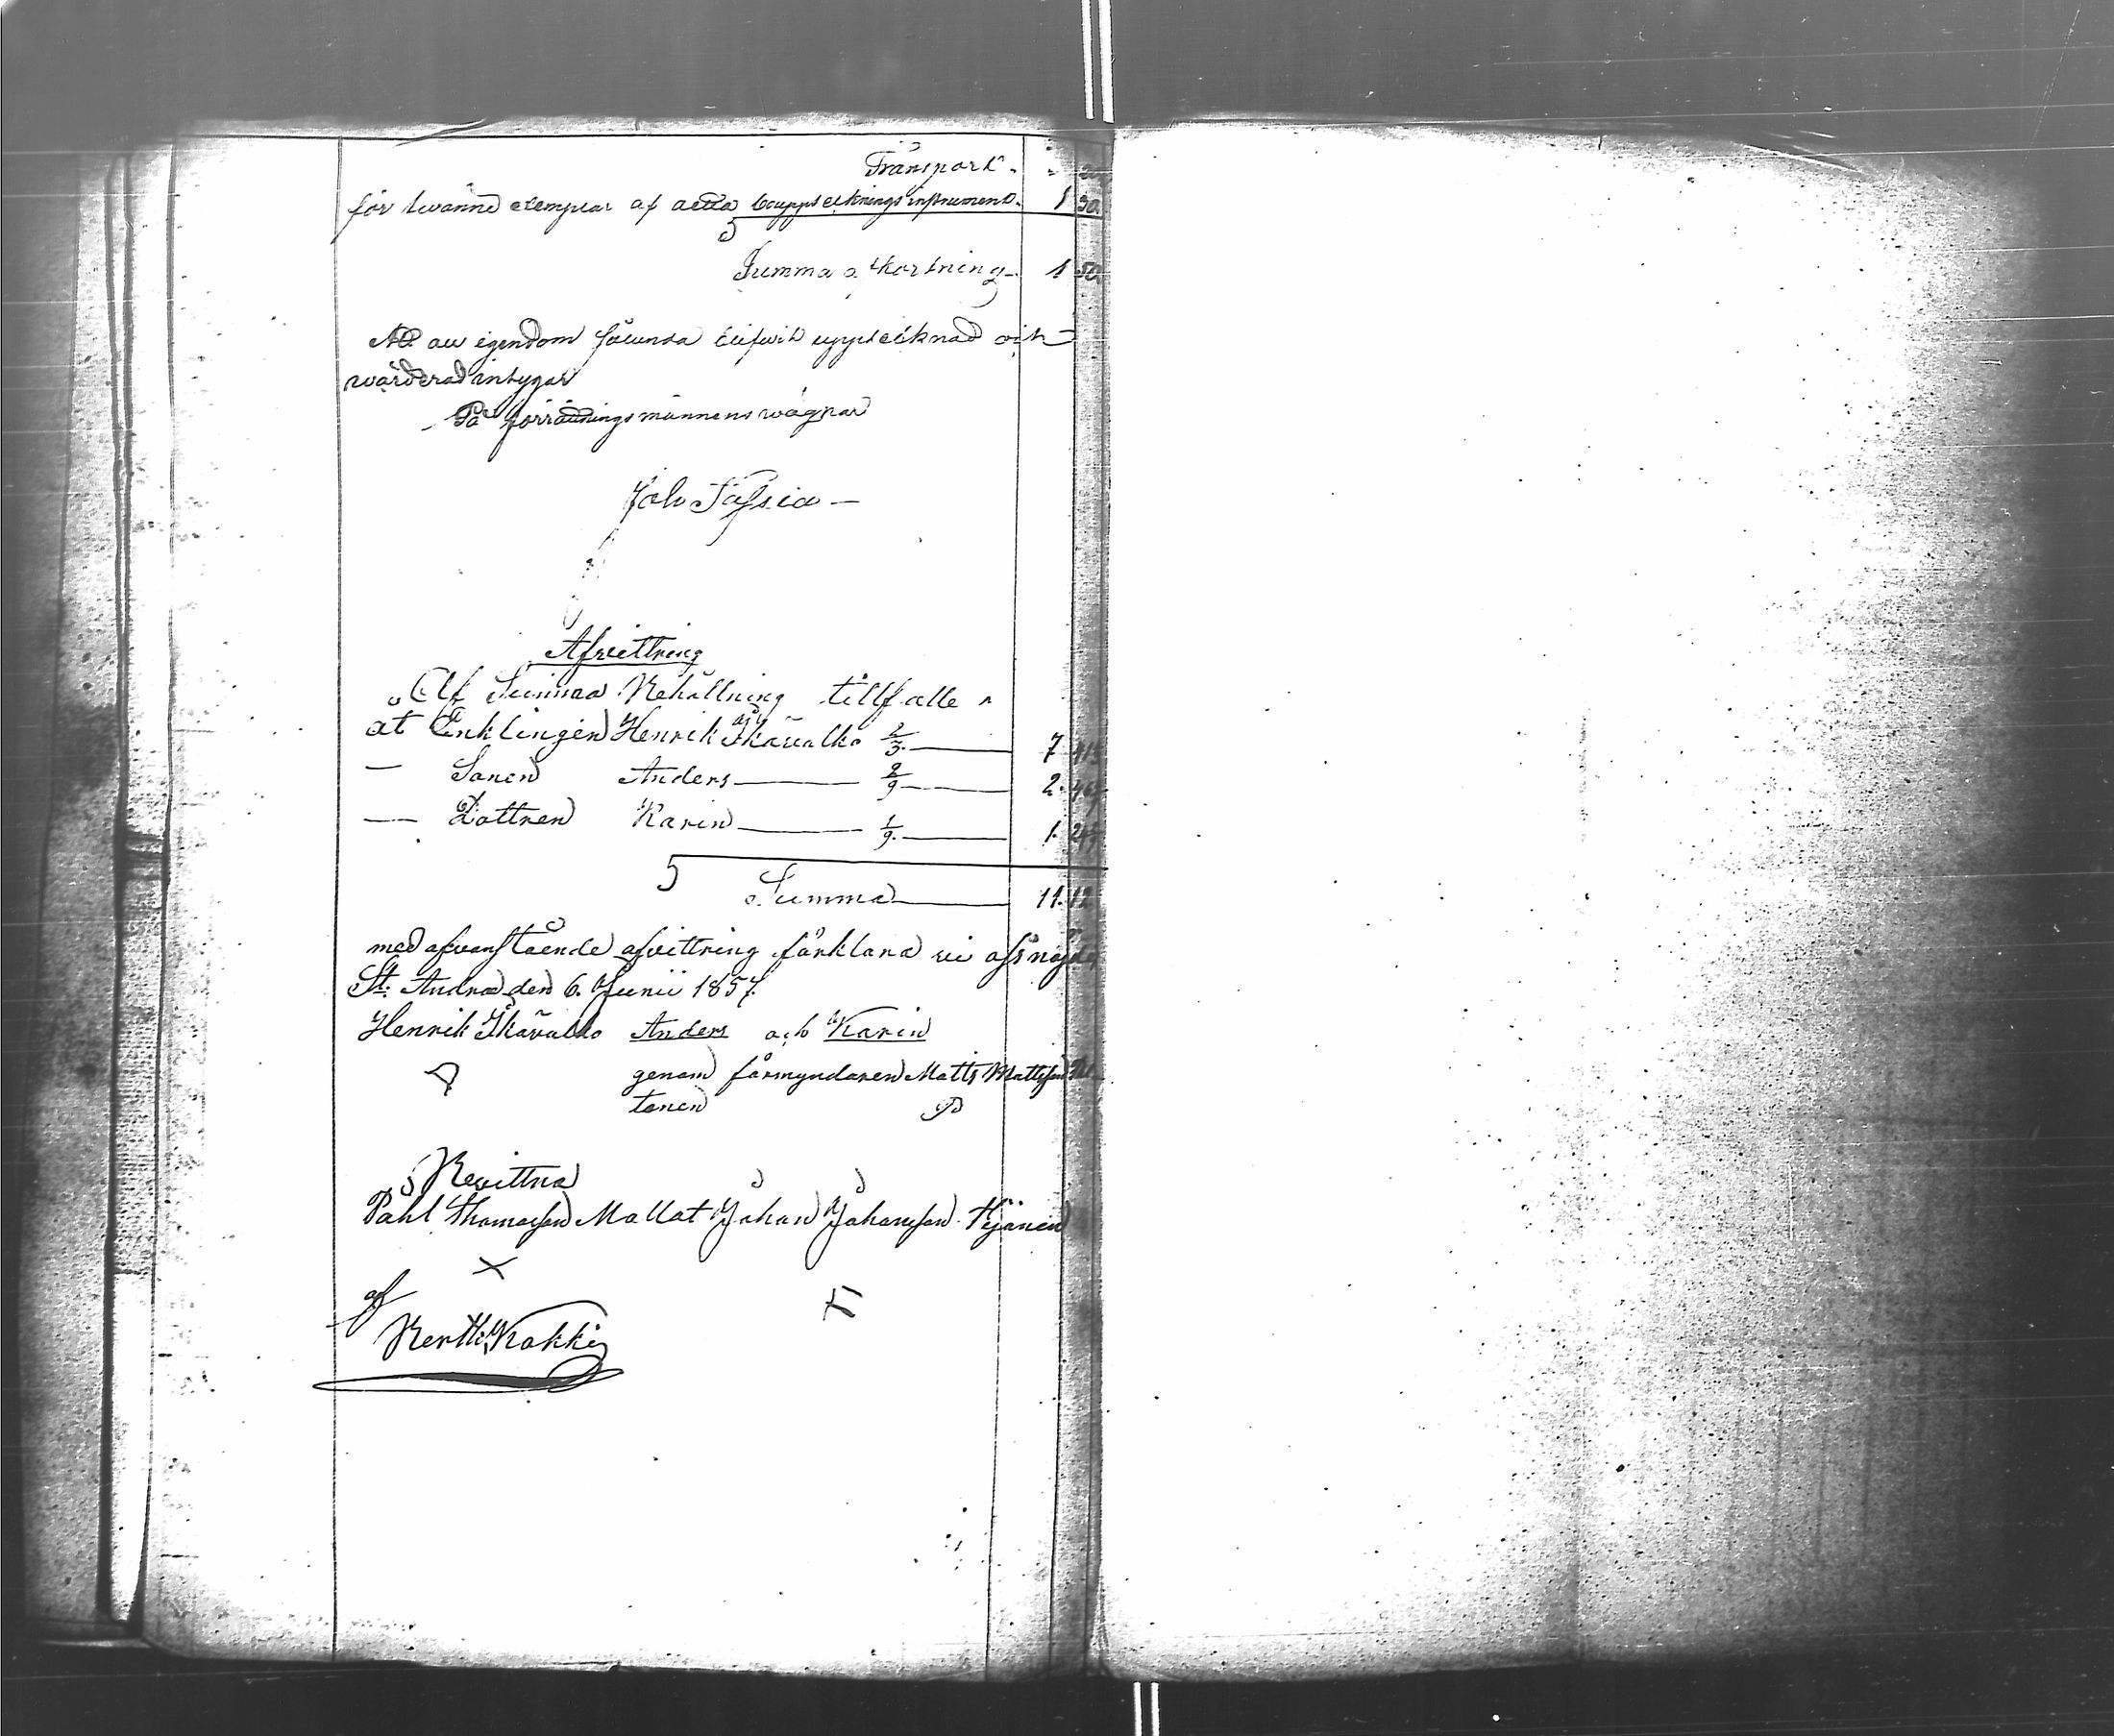 Transport. - 20
för twänne exemplar af detta bouppteckningsinstrument. 1 30.
Summa afkortning. 1 50.
At all egendom sålunda blifwit upptecknad och
wärderad intygar
På förrättningsmännens wägnar
Joh
Afvittring
Af Summa Behållning tillfaller
at Enklingen Henrik Ikävalko 2/3. 7
— Sonen Anders 2/9 2.
— Dottren Karin 1/9. 1.
Summa 11. 12
med ofvanstående afvittring förklara vi oss nöjda
St: Andrae den 6. Junii 1857.
Henrik Ikävalko Anders och Karin
genom förmyndaren Matts Mattsson
tonen
Bevittna
Påhl Thomasson Mallat Johan Johansson Hyönen
af
Bertti Kokki